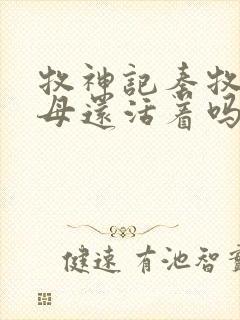 牧神記秦牧
母還活着吗
健速 有池智實